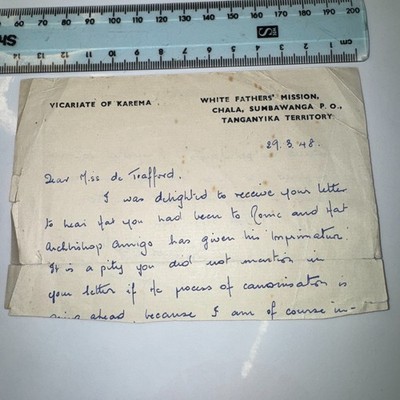 60 70 80 90 100 110 120 130 140 150 160 170 180 190 200
SHC
14 13 12 11 10 9 8 7 6 5 4 3 2 1 cm
VICARIATE OF KAREMA
WHITE FATHERS' MISSION,
CHALA, SUMBAWANGA P. O.,
TANGANYIKA TERRITORY
29.3.48.
Dear Miss de Trafford.
I was delighted to receive your letter
to hear that you had been to Rome and that
Archbishop Amigo has given his 'Imprimatur'.
It is a pity you did not mention in
your letter if the process of canonisation is
going ahead because I am of course in-